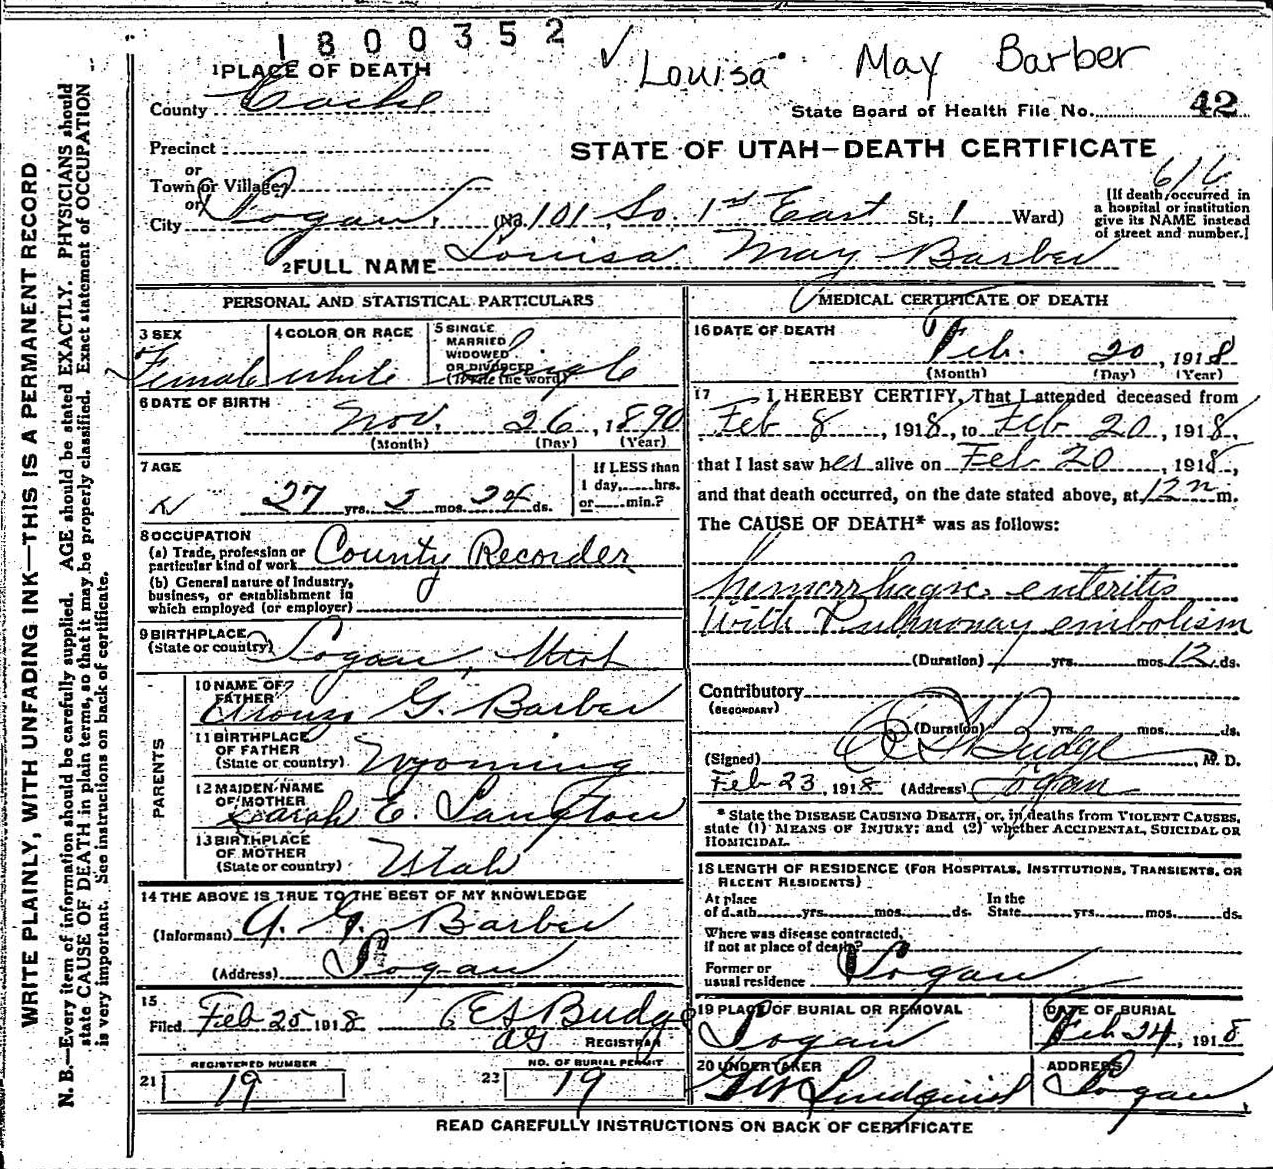 1800352
✓ Louisa May Barber
1 PLACE OF DEATH
County Cache
State Board of Health File No. 42
Precinct
STATE OF UTAH—DEATH CERTIFICATE
or
Town or Village
or
616
City Logan. (No. 101, So. 1st East St.; 1 Ward)
[If death occurred in
a hospital or institution
give its NAME instead
of street and number.]
2 FULL NAME Louisa May Barber
PERSONAL AND STATISTICAL PARTICULARS
3 SEX
Female
4 COLOR OR RACE
white
5 SINGLE
MARRIED
WIDOWED
OR DIVORCED
(Write the word)
Single
6 DATE OF BIRTH
Nov. 26, 1890
(Month) (Day) (Year)
7 AGE
27 yrs. 2 mos. 24 ds.
If LESS than
1 day, hrs.
or min.?
8 OCCUPATION
(a) Trade, profession or
particular kind of work County Recorder
(b) General nature of industry,
business, or establishment in
which employed (or employer)
9 BIRTHPLACE
(State or country) Logan, Utah
PARENTS
10 NAME OF
FATHER
G. Barber
11 BIRTHPLACE
OF FATHER
(State or country) Wyoming
12 MAIDEN NAME
OF MOTHER
Sarah E. Langton
13 BIRTHPLACE
OF MOTHER
(State or country) Utah
14 THE ABOVE IS TRUE TO THE BEST OF MY KNOWLEDGE
(Informant) A. G. Barber
(Address) Logan
15
Filed Feb 25 1918 E S Budge
REGISTRAR
REGISTERED NUMBER
21 19
NO. OF BURIAL PERMIT
22 19
MEDICAL CERTIFICATE OF DEATH
16 DATE OF DEATH
Feb. 20, 1918
(Month) (Day) (Year)
17 I HEREBY CERTIFY, That I attended deceased from
Feb 8, 1918, to Feb 20, 1918,
that I last saw her alive on Feb 20, 1918,
and that death occurred, on the date stated above, at 12 n m.
The CAUSE OF DEATH* was as follows:
hemorrhagic enteritis
With Pulmonay embolism
(Duration) yrs. mos. 12 ds.
Contributory
(SECONDARY)
(Duration) yrs. mos. ds.
(Signed) Budge, M. D.
Feb 23, 1918 (Address) Logan
* State the DISEASE CAUSING DEATH, or, in deaths from VIOLENT CAUSES,
state (1) MEANS OF INJURY; and (2) whether ACCIDENTAL, SUICIDAL OR
HOMICIDAL.
18 LENGTH OF RESIDENCE (FOR HOSPITALS, INSTITUTIONS, TRANSIENTS, OR
RECENT RESIDENTS)
At place
of death yrs. mos. ds.
In the
State yrs. mos. ds.
Where was disease contracted,
if not at place of death?
Former or
usual residence Logan
19 PLACE OF BURIAL OR REMOVAL
Logan
DATE OF BURIAL
Feb 24, 1918
20 UNDERTAKER
Lindquist
ADDRESS
Logan
READ CAREFULLY INSTRUCTIONS ON BACK OF CERTIFICATE
WRITE PLAINLY, WITH UNFADING INK—THIS IS A PERMANENT RECORD
N. B.—Every item of information should be carefully supplied. AGE should be stated EXACTLY. PHYSICIANS should
state CAUSE OF DEATH in plain terms, so that it may be properly classified. Exact statement of OCCUPATION
is very important. See instructions on back of certificate.